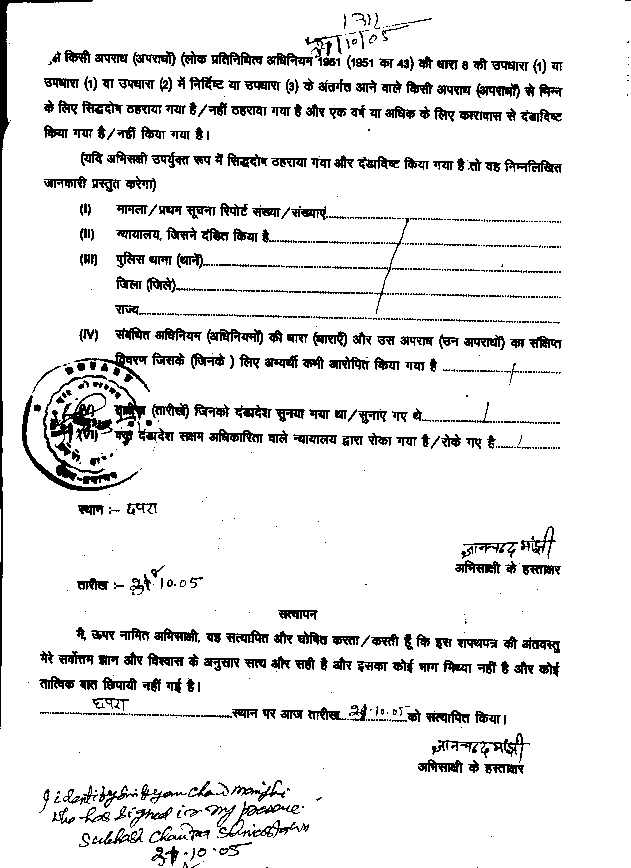 1312
21/10/05
से किसी अपराध (अपराधों) (लोक प्रतिनिधित्व अधिनियम 1951 (1951 का 43) की धारा 8 की उपधारा (1) या
उपधारा (1) या उपधारा (2) में निर्दिष्ट या उपधारा (3) के अंतर्गत आने वाले किसी अपराध (अपराधों) से भिन्न
के लिए सिद्धदोष ठहराया गया है / नहीं ठहराया गया है और एक वर्ष या अधिक के लिए कारावास से दंडादिष्ट
किया गया है / नहीं किया गया है।
(यदि अभिसाक्षी उपर्युक्त रूप में सिद्धदोष ठहराया गया और दंडादिष्ट किया गया है तो वह निम्नलिखित
जानकारी प्रस्तुत करेगा)
(I) मामला / प्रथम सूचना रिपोर्ट संख्या / संख्याएं
(II) न्यायालय, जिसने दंडित किया है
(III) पुलिस थाना (थानें)
जिला (जिले)
राज्य
(IV) संबंधित अधिनियम (अधिनियमों) की धारा (धाराएँ) और उस अपराध (उन अपराधों) का संक्षिप्त
विवरण जिसके (जिनके ) लिए अभ्यर्थी कभी आरोपित किया गया है
NOTARY
(V) तारीख (तारीखें) जिनको दंडादेश सुनया गया था / सुनाए गए थे
(VI) क्या दंडादेश सक्षम अधिकारिता वाले न्यायालय द्वारा रोका गया है / रोके गए है
स्थान :– छपरा
ज्ञानचन्द मांझी
अभिसाक्षी के हस्ताक्षर
तारीख :– 21.10.05
सत्यापन
मै, ऊपर नामित अभिसाक्षी, यह सत्यापित और घोषित करता / करती हूँ कि इस शपथपत्र की अंतवस्तु
मेरे सर्वोत्तम ज्ञान और विश्वास के अनुसार सत्य और सही है और इसका कोई भाग मिथ्या नहीं है और कोई
तात्विक बात छिपायी नहीं गई है।
छपरा स्थान पर आज तारीख 21.10.05 को सत्यापित किया।
ज्ञानचन्द मांझी
अभिसाक्षी के हस्ताक्षर
I identify Gyan Chand Manjhi
who has signed in my presence.
Subhash Chandra
21.10.05